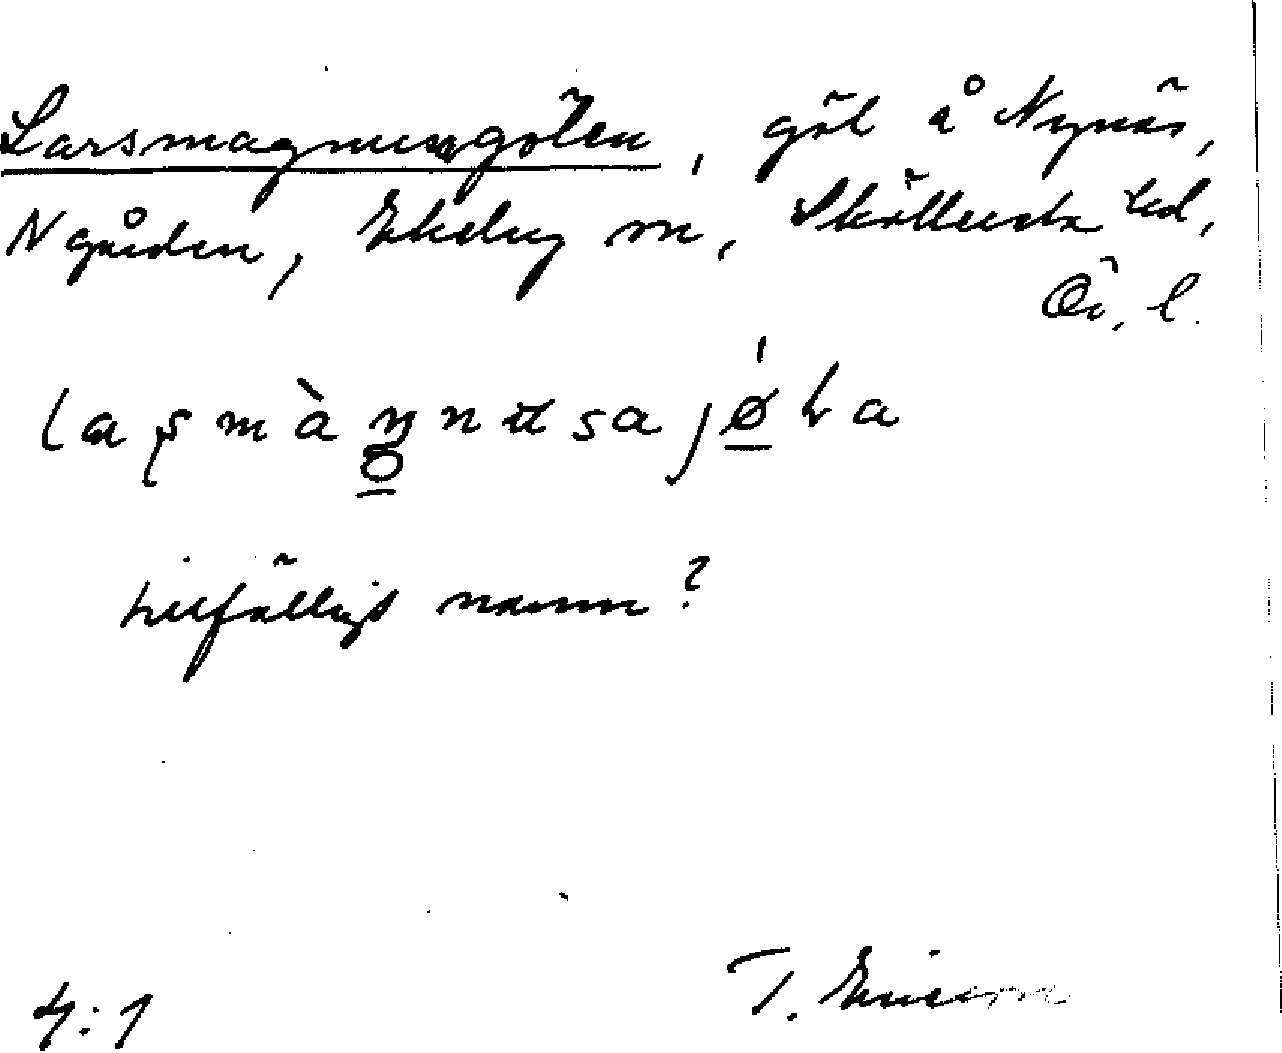 Larsmagnusgölen, göl å Nynäs,
N gården, Ekeby sn, Sköllersta hd,
Ör. l.
tillfälligt namn?
4:1 T. Ericson